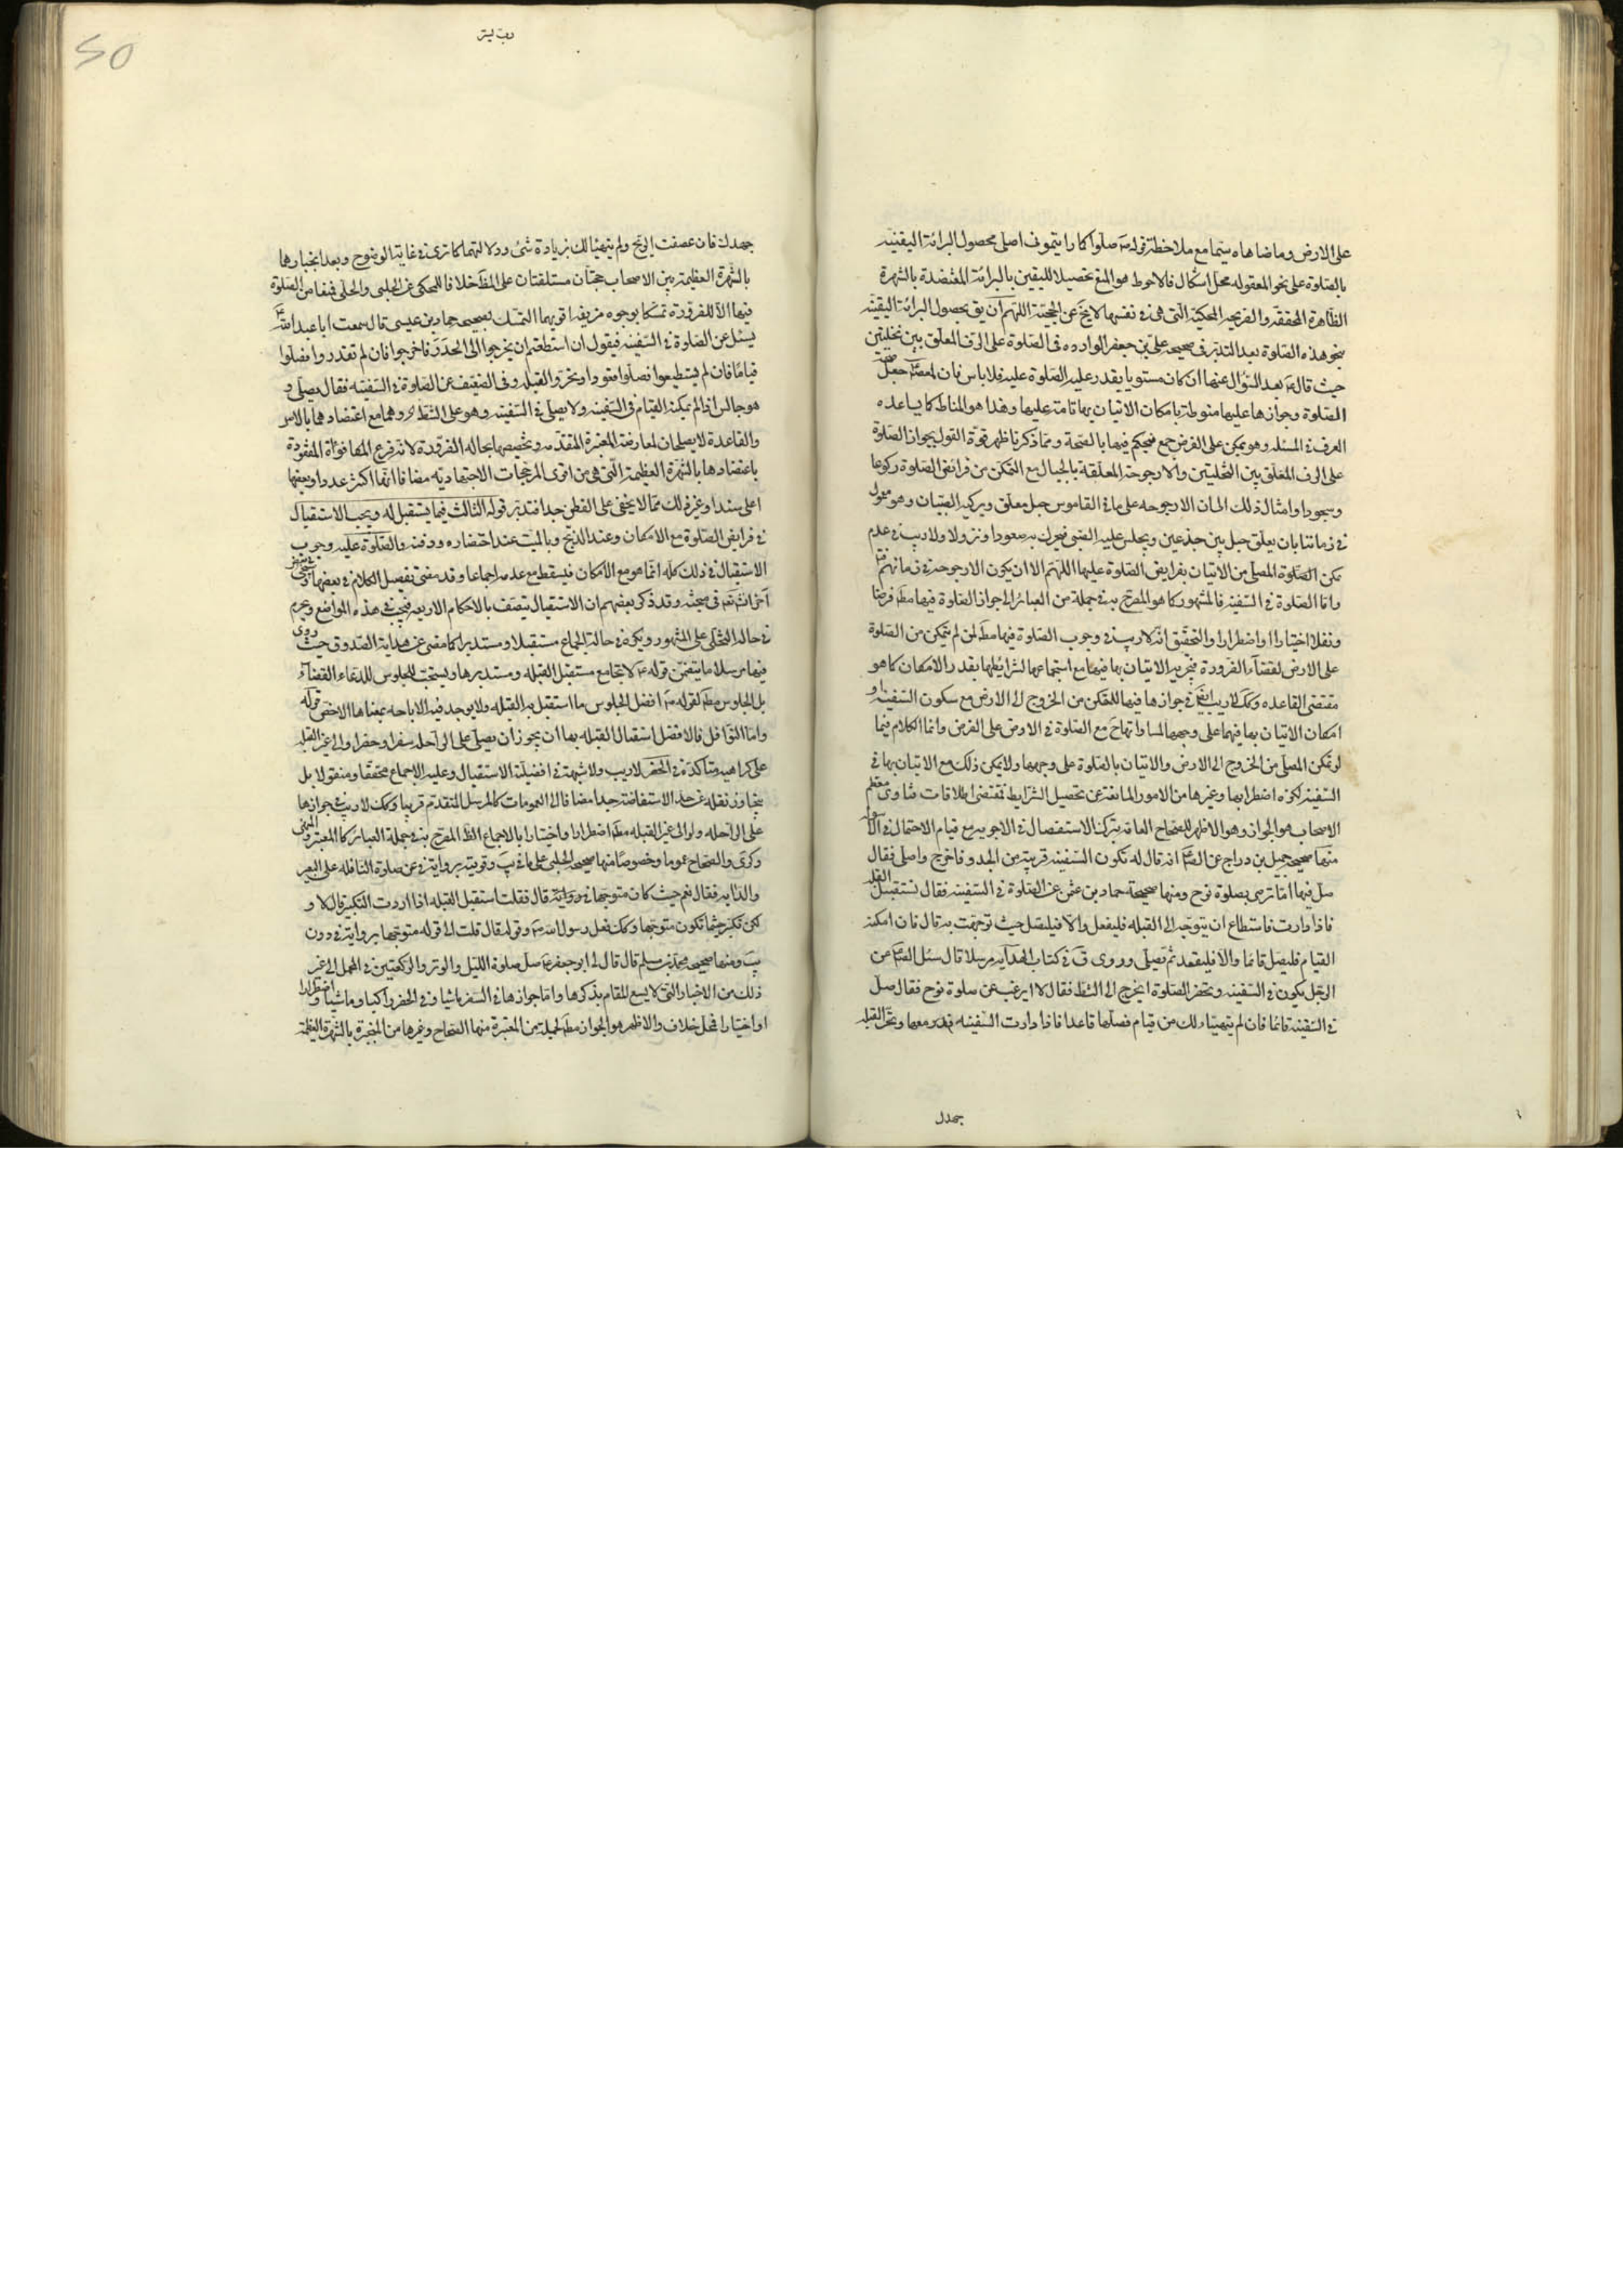 على الارض وما ضاهاه سيما مع ملاحظة قوله صلوا كما رايتموني اصلي محصول البرائة اليقينية
بالصلوة على نحو المعقوله محل اشكال فالاحوط هو المنع تحصيلا لليقين بالبرائة المعتضدة بالشهرة
الظاهرة المحققة والصريحة المحكية التي هي في نفسها لا يخ عن الحجية اللهم ان يق بحصول البرائة اليقينية
بنحو هذه الصلوة بعد التدبر في صحيحة علي بن جعفر الوارده في الصلوة على الرف المعلق بين نخلتين
حيث قال بعد السؤال عنها ان كان مستويا يقدر عليه الصلوة عليه فلا باس فان جعل
الصلوة وجوازها عليها منوطة بامكان الاتيان بها تامة عليها وهذا هو المناط كما يساعده
العرف في المسئلة وهو يمكن على الفرض فيحكم فيها بالصحة ومما ذكرنا ظهر قوة القول بجواز الصلوة
على الرف المعلق بين النخلتين والارجوحة المعلقة بالحبال مع التمكن من فرائض الصلوة ركوعا
وسجودا وامثال ذلك الا ان الارجوحه على ما في القاموس حبل معلق ويركبه الصبيان وهو معمول
في زماننا بان يعلق حبل بين جذعين ويجلس عليه الصبي فيحرك به صعودا ونزولا ولا ريب في عدم
تمكن المصلي من الاتيان بفرايض الصلوة عليها اللهم الا ان يكون الارجوحة في زمانهم
واما الصلوة في السفينة فالمشهور كما هو المصرح به في جملة من العبائر الى جواز الصلوة فيها مطلقا فرضا
ونفلا اختيارا واضطرارا والتحقيق انه لا ريب في وجوب الصلوة فيها مط لمن لم يتمكن من الصلوة
على الارض لقضاء الضرورة فيجزيه الاتيان بها فيها مع استجماعها لشرائطها بقدر الامكان كما هو
مقتضى القاعده وكك لا ريب ايض في جوازها فيها للمتمكن من الخروج الى الارض مع سكون السفينة و
امكان الاتيان بها فيها على وجهها لمساواتها ح مع الصلوة في الارض على الفرض وانما الكلام فيما
لو تمكن المصلي من الخروج الى الارض والاتيان بالصلوة على وجهها ولا يمكن ذلك مع الاتيان بها في
السفينة لكثرة اضطرابها وغيرها من الامور المانعة عن تحصيل الشرايط فمقتضى اطلاقات فتاوى معظم
الاصحاب هو الجواز وهو الاظهر للصحاح العامة بترك الاستفصال في الاجوبة مع قيام الاحتمال في الاسوله
منها صحيحة جميل بن دراج عن الص انه قال له تكون السفينة قريبة من الجدد فاخرج واصلي فقال
صل فيها اما ترضى بصلوة نوح ومنها صحيحة حماد بن عثمن عن الصلوة في السفينة فقال تستقبل القبلة
فاذا دارت فاستطاع ان يتوجه الى القبله فليفعل والا فليصل حيث توجهت به قال فان امكنه
القيام فليصل قائما والا فليقعد ثم يصلي وروى ق في كتاب الهداية مرسلا قال سئل الص عن
الرجل يكون في السفينة وتحضر الصلوة ايخرج الى الشط فقال لا ايرغب عن صلوة نوح فقال صل
في السفينة قائما فان لم يتهيأ لك من قيام فصلها قاعدا فاذا دارت السفينه فدر معها وتحر القبلة
جهدك
جهدك فان عصفت الريح ولم يتهيأ لك بزيادة شئ ودلالتهما كما ترى في غاية الوضوح وبعد انجبارها
بالشهرة العظيمة بين الاصحاب حجتان مستقلتان على المط خلافا للمحكي عن الحلبي والحلي فمنعا من الصلوة
فيها الا للضرورة تمسكا بوجوه مزيفة اقويها التمسك بصحيحة حماد بن عيسى قال سمعت ابا عبد الله
يسئل عن الصلوة في السفينة فيقول ان استطعتم ان يخرجوا الى الجدد فاخرجوا فان لم تقدروا فصلوا
قياما فان لم يستطيعوا فصلوا قعودا وتحروا القبلة وفي الضعيف عن الصلوة في السفينه فقال يصلي و
هو جالس اذا لم يمكنه القيام في السفينة ولا يصلي في السفينة وهو على الشط وهما مع اعتضادهما بالاصل
والقاعدة لا يصلحان لمعارضة المعتبرة المتقدمة وتخصيصها بحالة الضرورة لانه فرع المكافؤة المفقودة
باعتضادها بالشهرة العظيمة التي هي من اقوى المرجحات الاجتهادية مضافا انها اكثر عددا وبعضها
اعلى سندا وغير ذلك مما لا يخفى على الفطن جدا فتدبر قوله الثالث فيما يستقبل له ويجب الاستقبال
في فرايض الصلوة مع الامكان وعند الذبح وبالميت عند احتضاره ودفنه والصلوة عليه وجوب
الاستقبال في ذلك كله انما هو مع الامكان فيسقط مع عدمه اجماعا وقد مضى تفصيل الكلام في بعضها
آخر انش تعه في مبحثه وقد ذكر بعضهم ان الاستقبال يتصف بالاحكام الاربعة فيجب في هذه المواضع ويحرم
في حالة التخلي على المشهور ويكره في حالة الجماع مستقبلا ومستدبرا كما مضى عن هداية الصدوق حيث روى
فيها مرسلا ما يتضمن قوله لا تجامع مستقبل القبله ومستدبرها ويستحب للجلوس للدعاء القضاء
بل الجلوس مط لقوله افضل الجلوس ما استقبل به القبله ولا يوجد فيه الاباحه بمعناها الاخص قوله
واما النوافل فالافضل استقبال القبله بها ان يجوز ان يصلي على الراحله سفرا وحضرا والى غير القبله
على كراهيه متاكدة في الحضر لا ريب ولا شبهة في افضيلة الاستقبال وعليه الاجماع محققا ومنقولا بل
يتجاوز نقله عن حد الاستفاضة جدا مضافا الى العمومات كالمرسل المتقدم قريبا وكك لا ريب في جوازها
على الراحله ولو الى غير القبله مط اضطرارا واختيارا بالاجماع الظ المصرح به في جملة العبائر كالمعتبر والمنتهى
وكرى والصحاح عموما وخصوصا منها صحيحة الحلبي على ما في يب وقويته برواية في عن صلوة النافله على البعير
والدابه فقال نعم حيث كان متوجها في رواية قال فقلت استقبل القبله اذا اردت التكبير قال لا و
لكن تكبر حيثما تكون متوجها وكك فعل رسول الله وقوله قال قلت الى قوله متوجها برواية في دون
يب ومنها صحيحة محمد بن مسلم قال قال لي ابو جعفر صل صلوة الليل والوتر والركعتين في المحمل الى غير
ذلك من الاخبار التي لا يسع المقام بذكرها واما جوازها في السفر ماشيا وفي الحضر راكبا وماشيا اضطرارا
او اختيارا فمحل خلاف والاظهر هو الجواز مط لجملة من المعتبرة منها الصحاح وغيرها من المنجبرة بالشهرة العظيمة
50